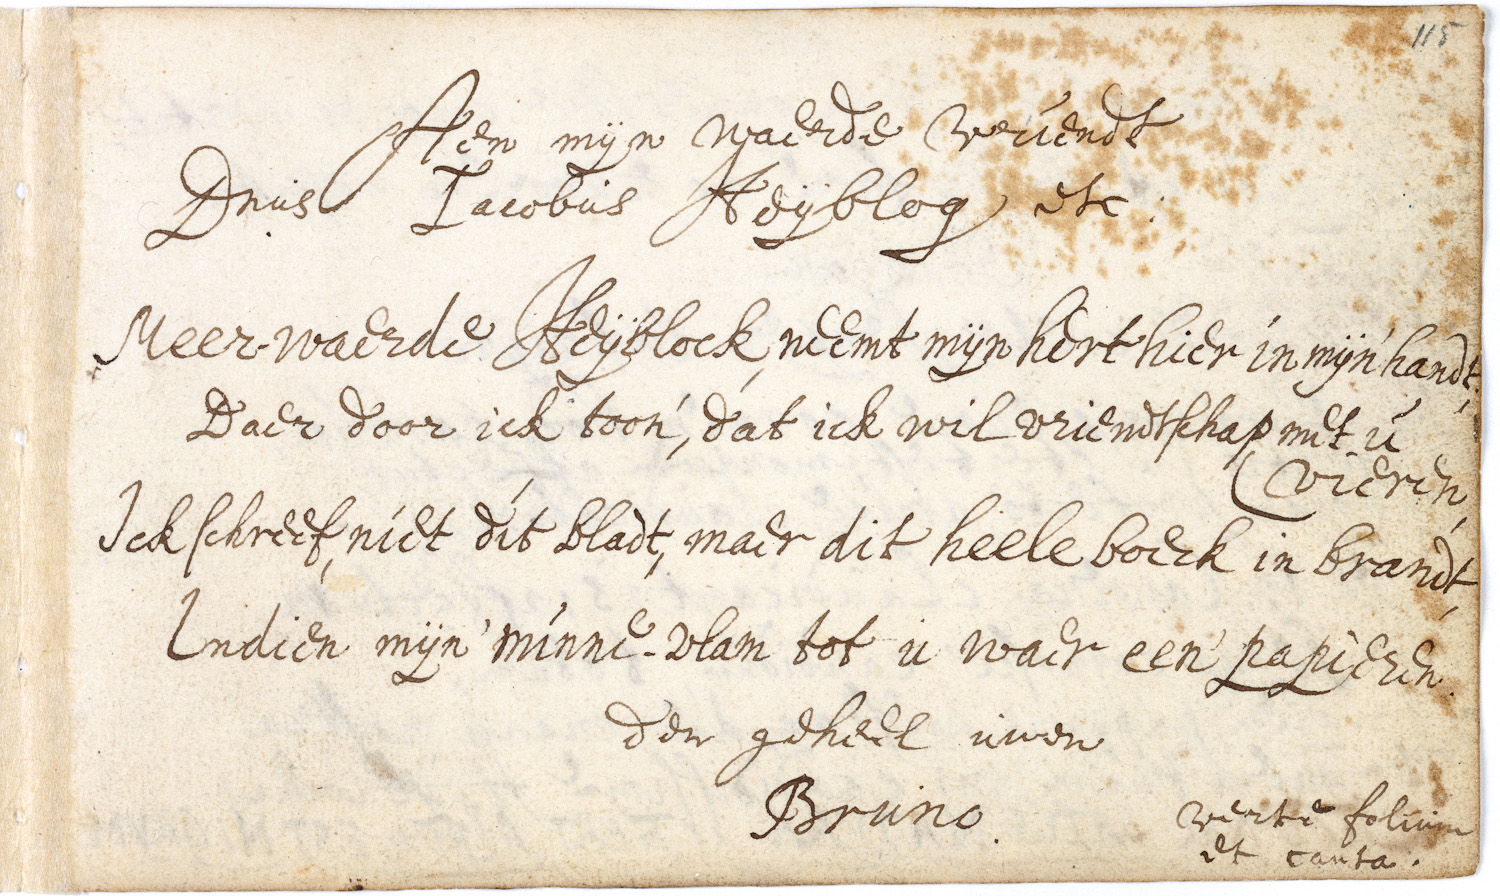 115
Aen mijn waerde vriendt
Dnus Jacobus Heÿbloq etc.
Meer-waerde Heÿblock, neemt mijn hert hier in mijn handt,
Daer door ick toon, dat ick wil vriendtschap met u
(vieren,
Ick schreef, niet dit bladt, maer dit heele boeck in brandt,
Indien mijn minne-vlam tot u waer een papieren.
den geheel uwen
Bruno.
verte folium
et canta.